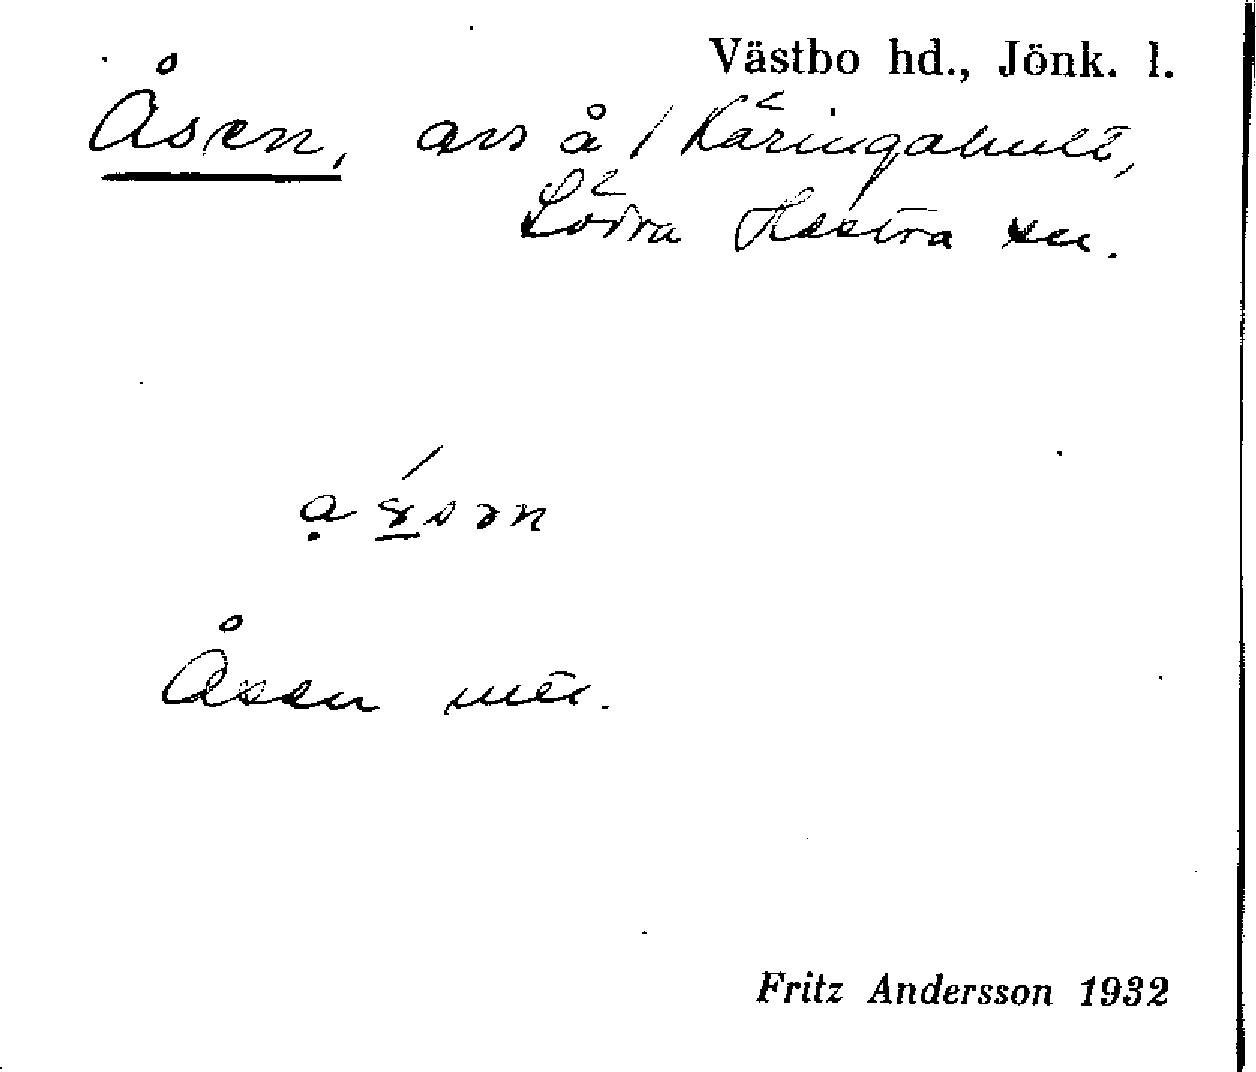 Västbo hd., Jönk. l.
Åsen, avs å / Käringahult,
Södra Hestra sn.
Åsen
Fritz Andersson 1932